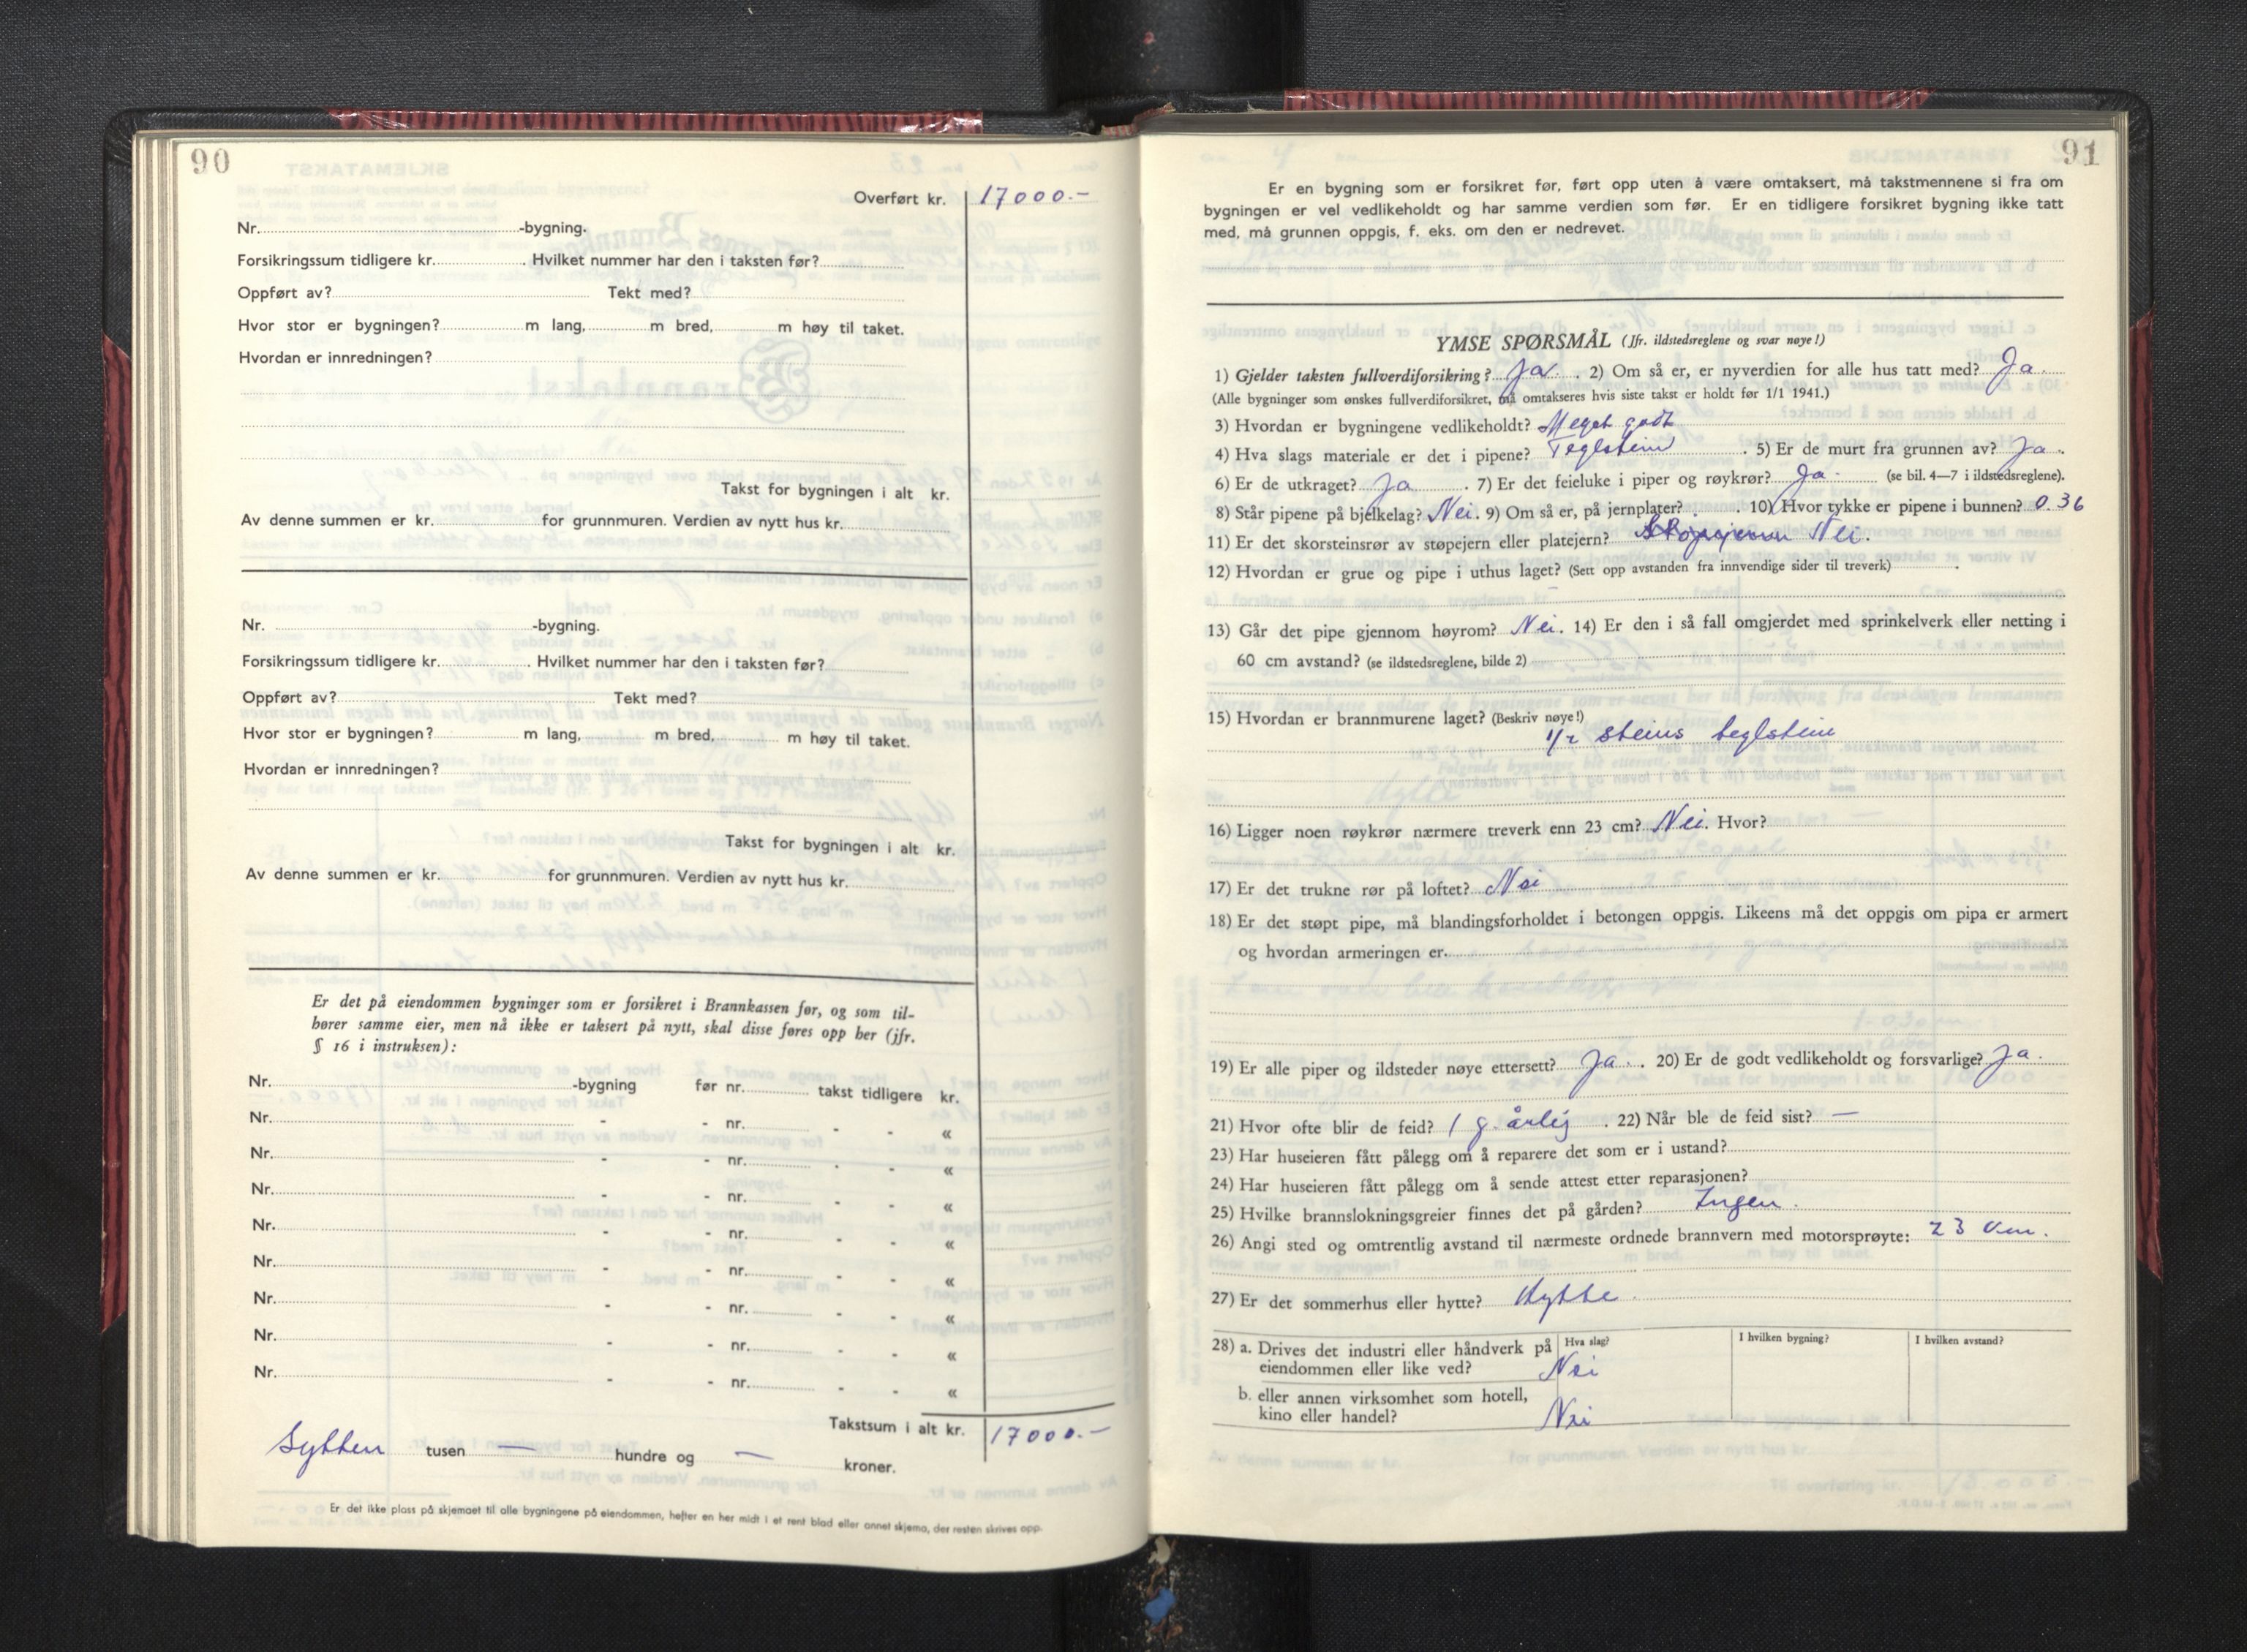 90
Overført kr. 17000.-
Nr. -bygning.
Forsikringssum tidligere kr. . Hvilket nummer har den i taksten før?
Oppført av? Tekt med?
Hvor stor er bygningen? m lang, m bred, m høy til taket.
Hvordan er innredningen?
Takst for bygningen i alt kr.
Av denne summen er kr. for grunnmuren. Verdien av nytt hus kr.
Nr. -bygning.
Forsikringssum tidligere kr. . Hvilket nummer har den i taksten før?
Oppført av? Tekt med?
Hvor stor er bygningen? m lang, m bred, m høy til taket.
Hvordan er innredningen?
Takst for bygningen i alt kr.
Av denne summen er kr. for grunnmuren. Verdien av nytt hus kr.
Er det på eiendommen bygninger som er forsikret i Brannkassen før, og som til-
hører samme eier, men nå ikke er taksert på nytt, skal disse føres opp her (jfr.
§ 16 i instruksen):
Nr. -bygning før nr. takst tidligere kr.
Nr. - - nr. - - «
Nr. - - nr. - - «
Nr. - - nr. - - «
Nr. - - nr. - - «
Nr. - - nr. - - «
Nr. - - nr. - - «
Nr. - - nr. - - «
Nr. - - nr. - - «
Takstsum i alt kr. 17000.-
Sytten tusen — hundre og — kroner.
Er det ikke plass på skjemaet til alle bygningene på eiendommen, hefter en her midt i et rent blad eller annet skjema, der resten skrives opp.
91
Er en bygning som er forsikret før, ført opp uten å være omtaksert, må takstmennene si fra om
bygningen er vel vedlikeholdt og har samme verdien som før. Er en tidligere forsikret bygning ikke tatt
med, må grunnen oppgis, f. eks. om den er nedrevet.
YMSE SPØRSMÅL (Jfr. ildstedsreglene og svar nøye!)
1) Gjelder taksten fullverdiforsikring? Ja. 2) Om så er, er nyverdien for alle hus tatt med? Ja.
(Alle bygninger som ønskes fullverdiforsikret, må omtakseres hvis siste takst er holdt før 1/1 1941.)
3) Hvordan er bygningene vedlikeholdt? Meget godt
4) Hva slags materiale er det i pipene? Teglstein . 5) Er de murt fra grunnen av? Ja.
6) Er de utkraget? Ja . 7) Er det feieluke i piper og røykrør? Ja. (se bil. 4—7 i ildstedsreglene).
8) Står pipene på bjelkelag? Nei. 9) Om så er, på jernplater? . 10) Hvor tykke er pipene i bunnen? 0.36
11) Er det skorsteinsrør av støpejern eller platejern? Støpejern Nei.
12) Hvordan er grue og pipe i uthus laget? (Sett opp avstanden fra innvendige sider til treverk) .
13) Går det pipe gjennom høyrom? Nei. 14) Er den i så fall omgjerdet med sprinkelverk eller netting i
60 cm avstand? (se ildstedsreglene, bilde 2)
15) Hvordan er brannmurene laget? (Beskriv nøye!)
1/2 steins teglstein
16) Ligger noen røykrør nærmere treverk enn 23 cm? Nei. Hvor?
17) Er det trukne rør på loftet? Nei
18) Er det støpt pipe, må blandingsforholdet i betongen oppgis. Likeens må det oppgis om pipa er armert
og hvordan armeringen er.
19) Er alle piper og ildsteder nøye ettersett? Ja. . 20) Er de godt vedlikeholdt og forsvarlige? Ja.
21) Hvor ofte blir de feid? 1 g. årlig . 22) Når ble de feid sist? —
23) Har huseieren fått pålegg om å reparere det som er i ustand?
24) Har huseieren fått pålegg om å sende attest etter reparasjonen?
25) Hvilke brannslokningsgreier finnes det på gården? Ingen.
26) Angi sted og omtrentlig avstand til nærmeste ordnede brannvern med motorsprøyte: 23 km.
27) Er det sommerhus eller hytte? Hytte.
28) a. Drives det industri eller håndverk på Hva slag? I hvilken bygning? I hvilken avstand?
eiendommen eller like ved? Nei
b. eller annen virksomhet som hotell,
kino eller handel? Nei